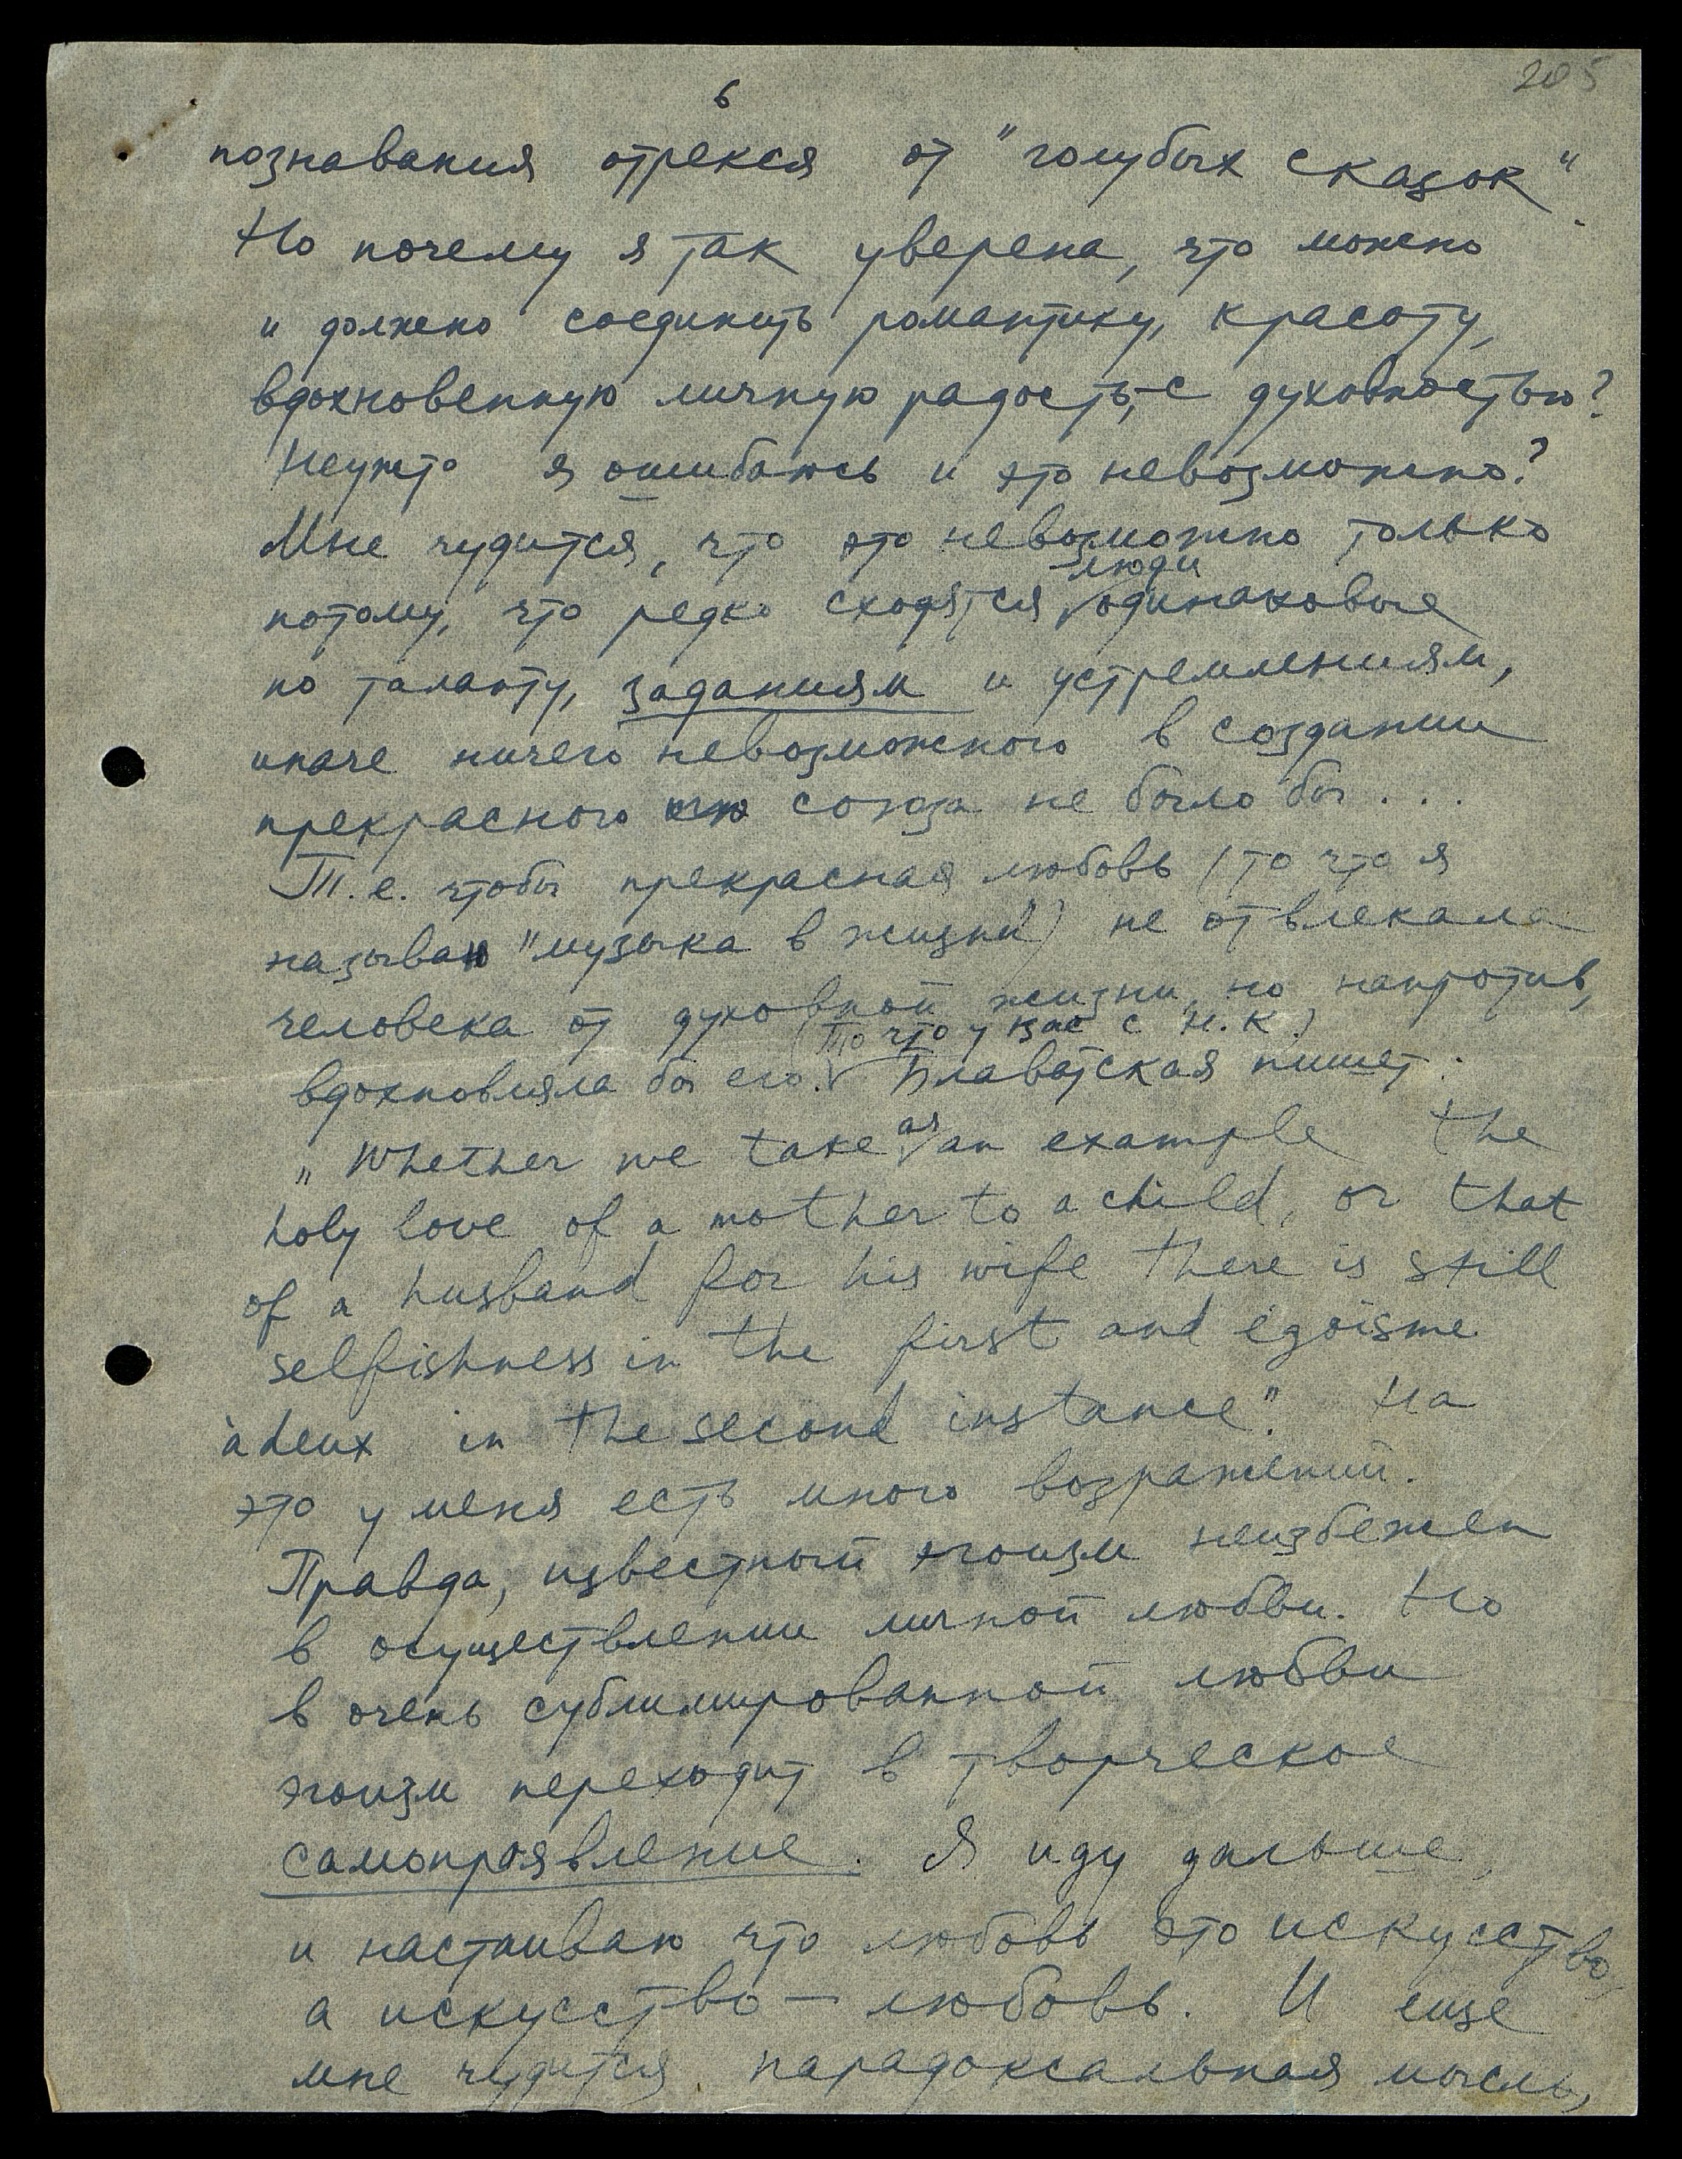 205
6
познавания отрекся от "голубых сказок".
Но почему я так уверена, что можно
и должно соединить романтику, красоту,
вдохновенную личную радость, – с духовностью?
Неужто я ошибаюсь и это невозможно?
Мне чудится, что это невозможно только
люди
потому, что редко сходятся одинаковые
по таланту, заданиям и устремлениям,
иначе ничего невозможного в создании
прекрасного союза не было бы...
Т.е. чтобы прекрасная любовь (то что я
называю "музыка в жизни") не отвлекала
человека от духовной жизни, но напротив,
(то что у вас с Н.К.)
вдохновляла бы его. Блаватская пишет:
„Whether we take as an example the
holy love of a mother to a child, or that
of a husband for his wife there is still
selfishness in the first and égoisme
à deux in the second instance". На
это у меня есть много возражений.
Правда, известный эгоизм неизбежен
в осуществлении личной любви. Но
в очень сублимированной любви
эгоизм переходит в творческое
самопроявление. Я иду дальше,
и настаиваю что любовь это искусство,
а искусство – любовь. И еще
мне чудится парадоксальная мысль,